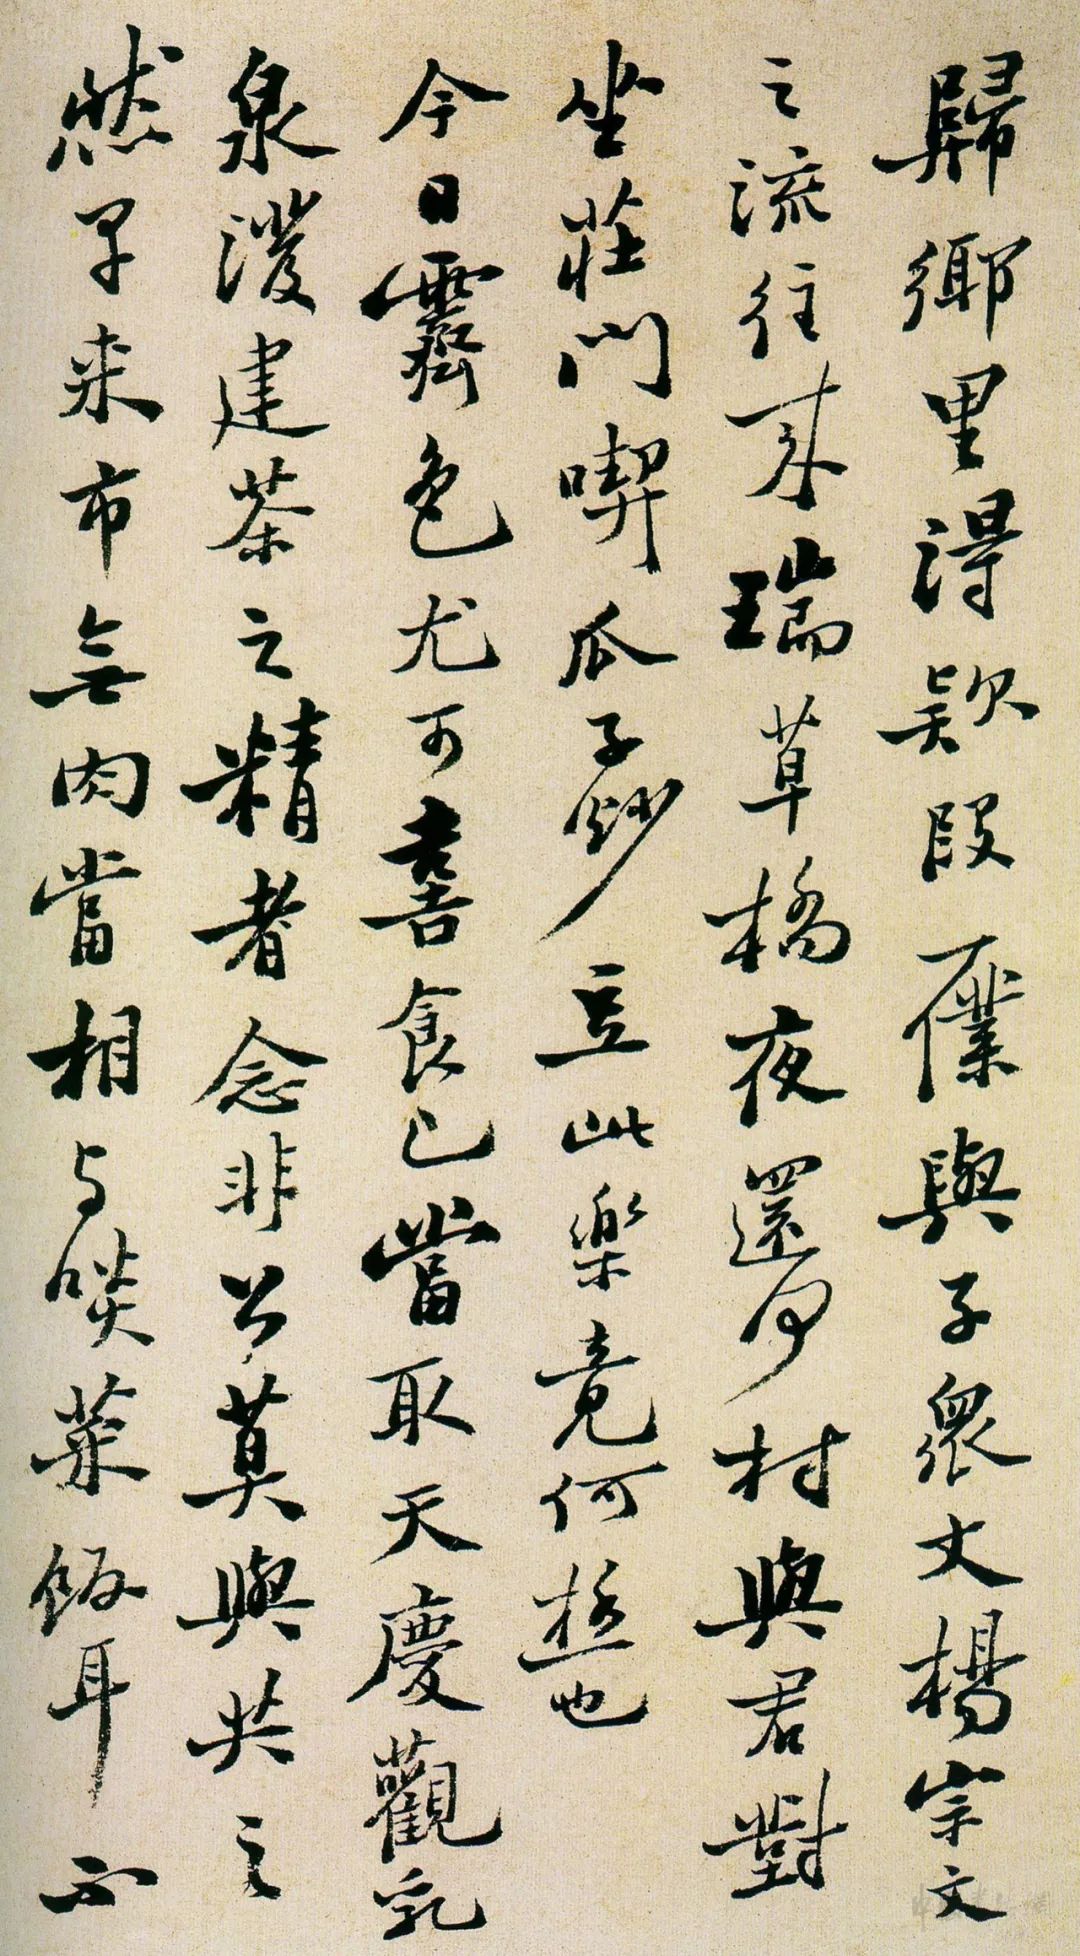 歸鄉里得款段僕與子眾丈楊宗文
之流往來瑞草橋夜還何村與君對
坐莊門喫瓜子炒豆此樂竟何極也
今日霽色尤可喜食已當取天慶觀乳
泉潑建茶之精者念非公莫與共之
然早來市無肉當相与啖菜飯耳不